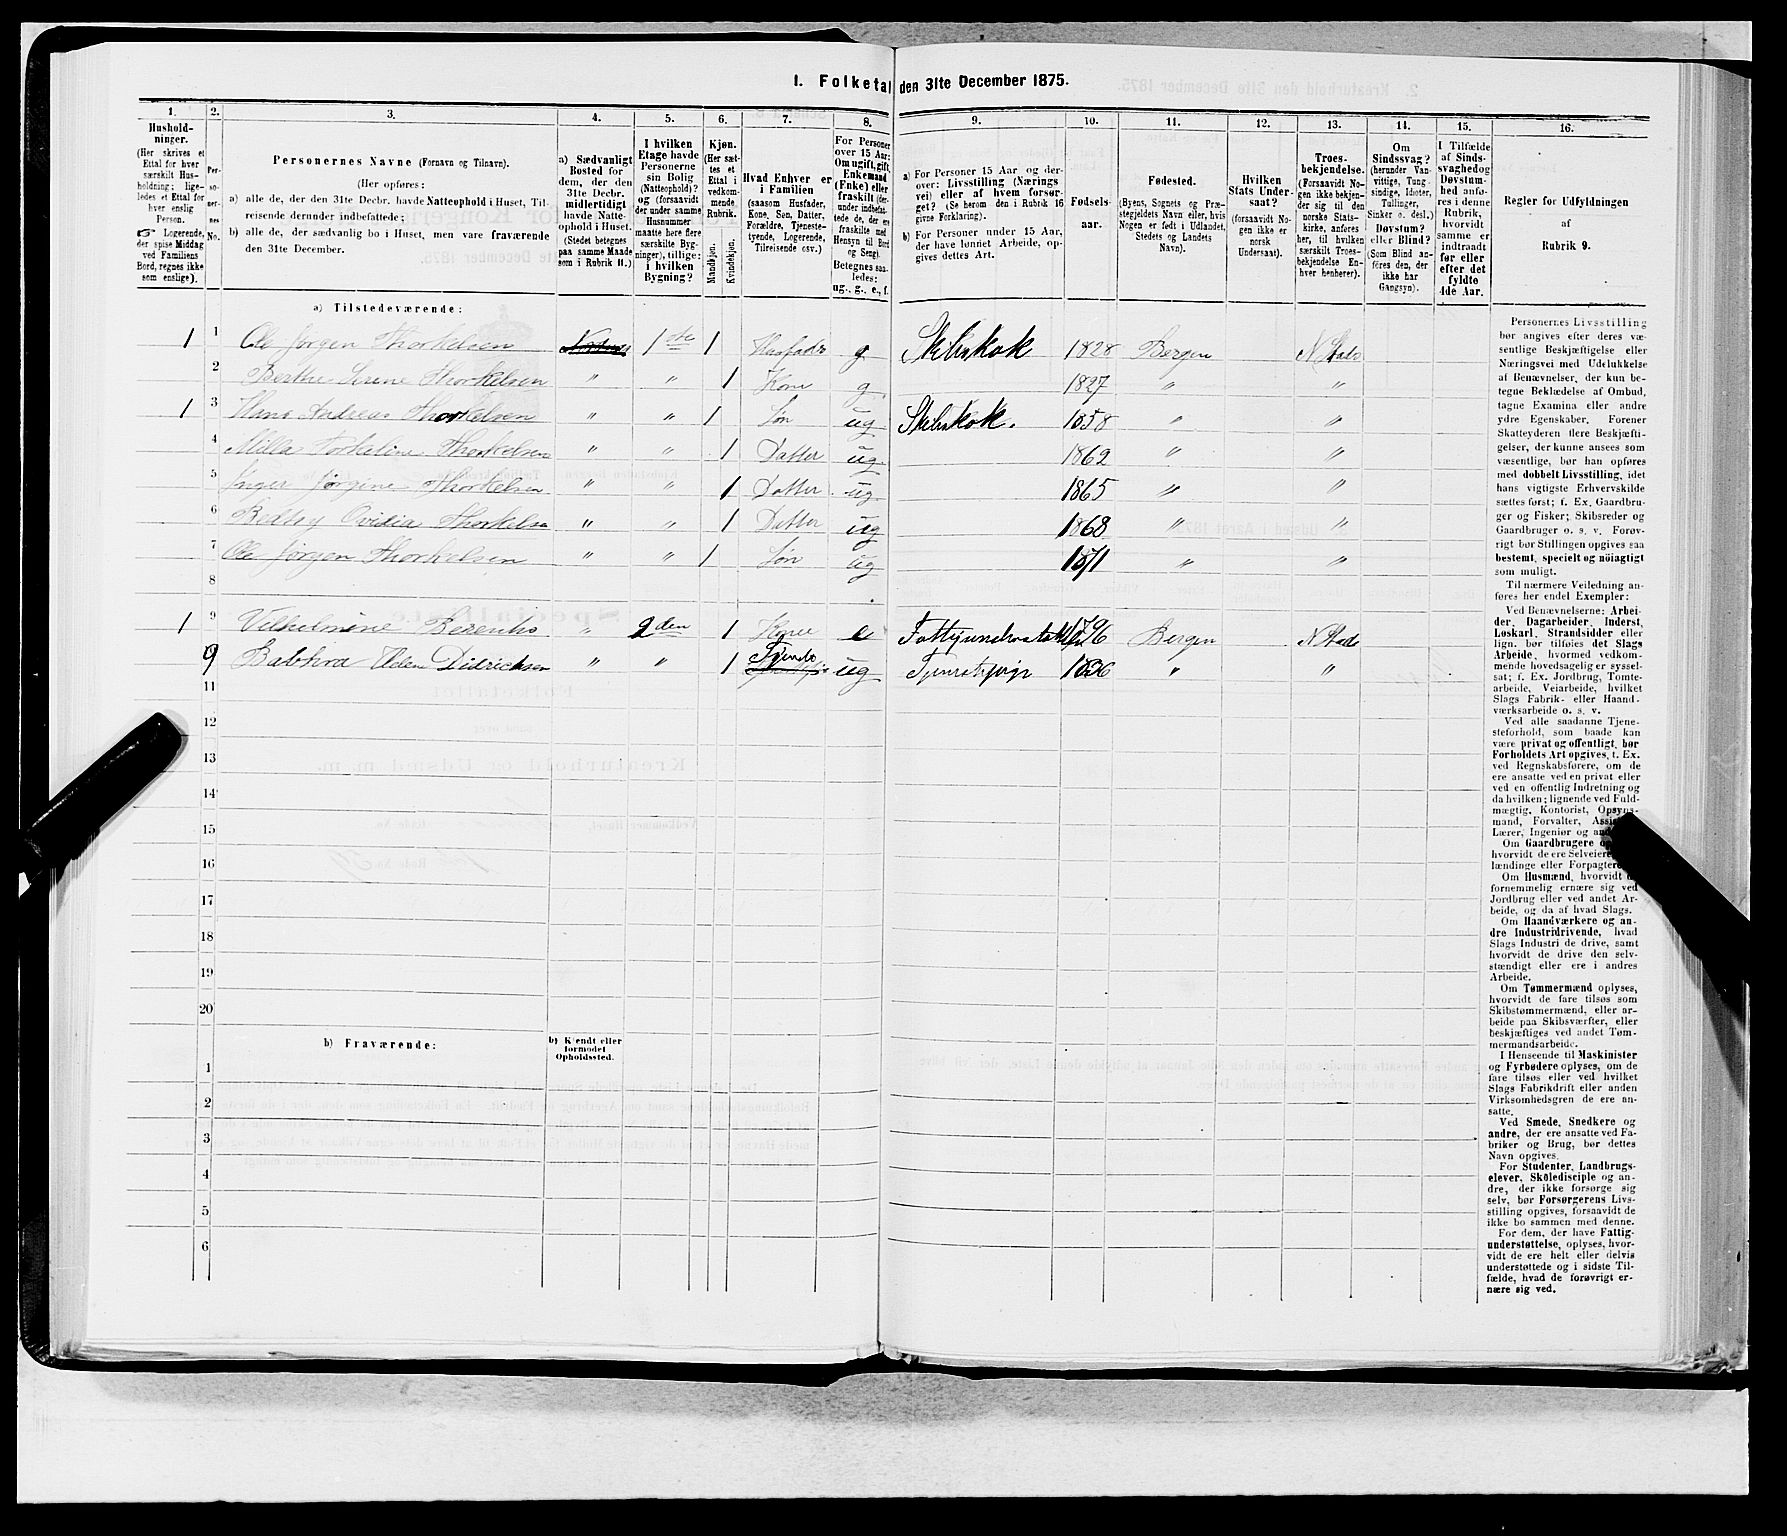 1. Folketal den 31te December 1875.
1. 2. 3. 4. 5. 6. 7. 8. 9. 10. 11. 12. 13. 14. 15. 16.
Hushold-
ninger.
(Her skrives et
Ettal for hver
særskilt Hus-
holdning; lige-
ledes et Ettal for
hver enslig
Person.
☞ Logerende,
der spise Middag
ved Familiens
Bord, regnes ikke
som enslige).
Per-
so-
ner-
nes
No.
Personernes Navne (Fornavn og Tilnavn).
(Her opføres:
a) alle de, der den 31te Decbr. havde Natteophold i Huset, Til-
reisende derunder indbefattede;
b) alle de, der sædvanlig bo i Huset, men vare fraværende
den 31te December.
a) Sædvanligt
Bosted for
dem, der den
31te Decbr.
midlertidigt
havde Natte-
ophold i Huset.
(Stedet betegnes
paa samme Maade
som i Rubrik 11.)
I hvilken
Etage havde
Personerne
sin Bolig
(Natteophold)?
og (forsaavidt
der under samme
Husnummer
maatte høre flere
særskilte Byg-
ninger), tillige:
i hvilken
Bygning?
Kjøn.
(Her sæt-
tes et
Ettal i
vedkom-
mende
Rubrik.
Mandkjøn.
Kvindekjøn.
Hvad Enhver er
i Familien
(saasom Husfader,
Kone, Søn, Datter,
Forældre, Tjeneste-
tyende, Logerende,
Tilreisende osv.)
For Personer
over 15 Aar:
Om ugift, gift,
Enkemand
(Enke) eller
fraskilt (der-
under indbefat-
tede de, der ere
fraskilte med
Hensyn til Bord
og Seng).
Betegnes saa-
ledes:
ug., g., e., f.
a) For Personer 15 Aar og der-
over: Livsstilling (Nærings-
vei) eller af hvem forsør-
get? (Se herom den i Rubrik 16
givne Forklaring).
b) For Personer under 15 Aar,
der have lønnet Arbeide, op-
gives dettes Art.
Fødsels-
aar.
Fødested.
(Byens, Sognets og Præ-
stegjeldets Navn eller, hvis
Nogen er født i Udlandet,
Stedets og Landets
Navn).
Hvilken
Stats Under-
saat?
(forsaavidt No-
gen ikke er
norsk
Undersaat).
Troes-
bekjendelse.
(Forsaavidt No-
gen ikke bekjen-
der sig til den
norske Stats-
kirke, anføres
her, til hvilken
særskilt Troes-
bekjendelse En-
hver henhører).
Om
Sindssvag?
(herunder Van-
vittige, Tung-
sindige, Idioter,
Tullinger,
Sinker o. desl.)
Døvstum?
eller Blind?
(Som Blind an-
føres den, der
ikke har
Gangsyn).
I Tilfælde
af Sinds-
svaghed og
Døvstum-
hed anfø-
res i denne
Rubrik,
hvorvidt
samme er
indtraadt
før eller
efter det
fyldte
4de Aar.
Regler for Udfyldningen
af
Rubrik 9.
a) Tilstedeværende:
1 1 Ole Jørgen Thorkelsen 1ste 1 Husfader g Skibskok 1828 Bergen N Stats
2 Berthe Serene Thorkelsen " " 1 Kone g 1827 " "
1 3 Hans Andreas Thorkelsen " " 1 Søn ug Skibskok. 1858 " "
4 Milla Torkeline Thorkelsen " " 1 Datter ug 1862 " "
5 Inger Jørgine Thorkelsen " " 1 Datter ug 1865 " "
6 Betsey Ovidia Thorkelsen " " 1 Datter ug 1868 " "
7 Ole Jørgen Thorkelsen " " 1 Søn ug 1871 " "
8
1 9 Vilhelmine Berentho " 2den 1 Kone e 1796 Bergen N Stats
9 Elen Didricksen " " 1 Tjenste ug 1836 " "
11
12
13
14
15
16
17
18
19
20
b) Fraværende:
b) Kjendt eller
formodet
Opholdssted.
1
2
3
4
5
6
Personernes Livsstilling
bør angives efter deres væ-
sentlige Beskjæftigelse eller
Næringsvei med Udelukkelse
af Benævnelser, der kun be-
tegne Beklædelse af Ombud,
tagne Examina eller andre
ydre Egenskaber. Forener
Skatteyderen flere Beskjæfti-
gelser, der kunne ansees som
væsentlige, bør han opføres
med dobbelt Livsstilling, idet
hans vigtigste Erhvervskilde
sættes først; f. Ex. Gaardbru-
ger og Fisker; Skibsreder og
Gaardbruger o. s. v. Forøv-
rigt bør Stillingen opgives saa
bestemt, specielt og nöiagtigt
som muligt.
Til nærmere Veiledning an-
føres her endel Exempler:
Ved Benævnelserne: Arbei-
der, Dagarbeider, Inderst,
Løskarl, Strandsidder eller
lign. bør tilføies det Slags
Arbeide, hvormed vedkom-
mende hovedsagelig er syssel-
sat; f. Ex. Jordbrug, Tomte-
arbeide, Veiarbeide, hvilket
Slags Fabrik- eller Haand-
værksarbeide o. s. v.
Ved alle saadanne Tjene-
steforhold, som baade kan
være privat og offentligt, bør
Forholdets Art opgives, t. Ex.
ved Regnskabsførere, om de
ere ansatte ved en privat eller
ved en offentlig Indretning og
da hvilken; lignende ved Fuld-
mægtig, Kontorist, Opsyns-
mand, Forvalter,
Lærer, Ingeniør og
Om Gaardbrugere
hvorvidt de ere Selveiere
lændinge eller Forpagtere
Om Husmænd, hvorvidt
fornemmelig ernære sig ved
Jordbrug eller ved andet Ar-
beide, og da af hvad Slags.
Om Haandværkere og an-
dre Industridrivende, hvad
Slags Industri de drive, samt
hvorvidt de drive den selv-
stændigt eller ere i andres
Arbeide.
Om Tømmermænd oplyses,
hvorvidt de fare tilsøs som
Skibstømmermænd, eller ar-
beide paa Skibsværfter, eller
beskjæftiges ved andet Tøm-
mermandsarbeide.
I Henseende til Maskinister
og Fyrbødere oplyses, om de
fare tilsøs eller ved hvilket
Slags Fabrikdrift eller anden
Virksomhedsgren de ere an-
satte.
Ved Smede, Snedkere og
andre, der ere ansatte ved Fa-
briker og Brug, bør dettes
Navn opgives.
For Studenter, Landbrugs-
elever, Skoledisciple og an-
dre, der ikke forsørge sig
selv, bør Forsørgerens Livs-
stilling opgives, forsaavidt de
ikke bo sammen med denne.
For dem, der have Fattig-
understøttelse, oplyses, hvor-
vidt de ere helt eller delvis
understøttede og i sidste Til-
fælde, hvad de forøvrigt er-
nære sig ved.